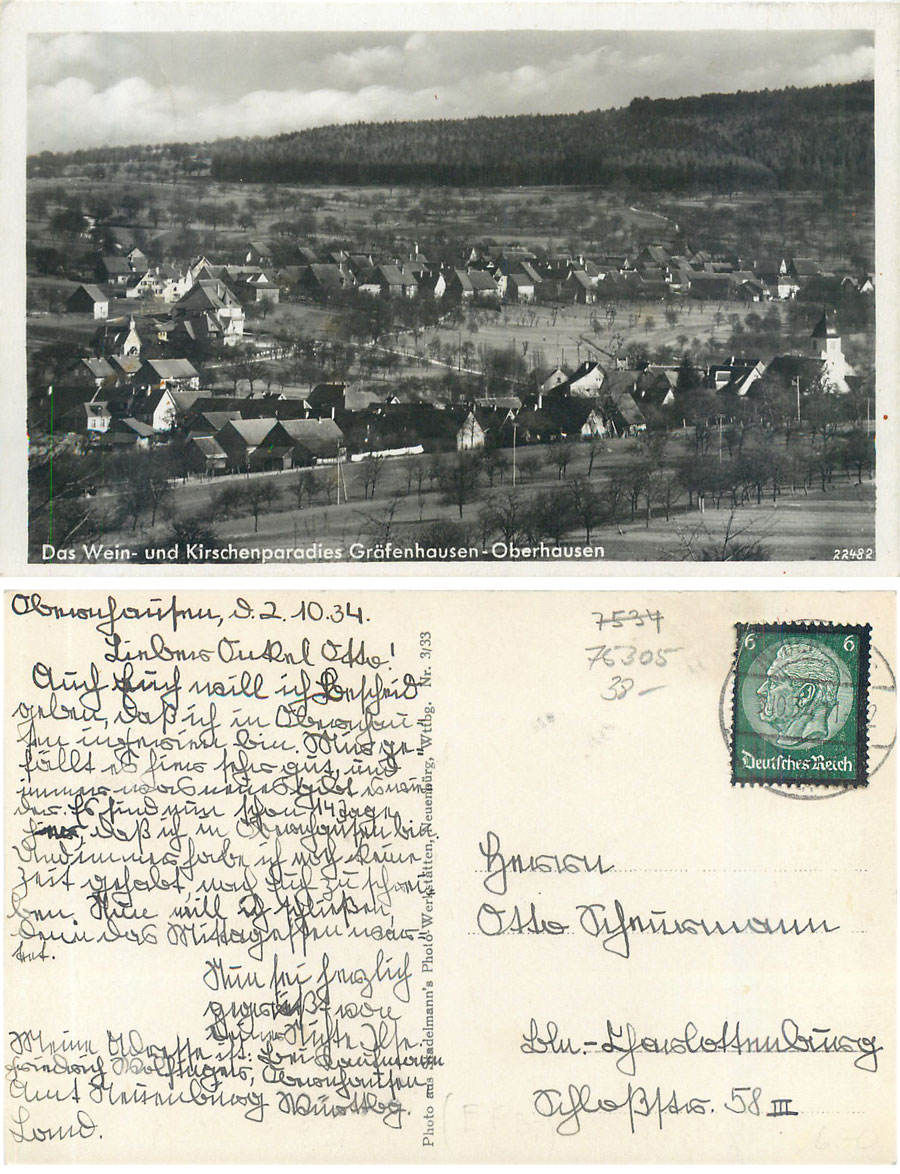 Das Wein- und Kirschenparadies Gräfenhausen-Oberhausen
22482
Obernhausen, d. 2.10.34.
Lieber Onkel Otto!
Auch Euch will ich Bescheid
geben, daß ich in Obernhau
sen in bin. Mir ge
fällt es hier sehr gut, und
immer was neues gibt es wie
der. Es sind nun schon 14 Tage
hier, daß ich in Obernhausen bin.
Und immer habe ich noch keine
Zeit gehabt, nach Euch zu schrei
ben. Nun will ich schließen,
denn das Mittagessen war
tet.
Nun sei herzlich
gegrüßt von
Deiner Nichte Ilse.
Meine Adresse ist: bei Kaufmann
Friedrich Wolfinger, Obernhausen
Amt Neuenbürg Württbg.
Land.
Photo aus Stadelmann's Photo-Werkstätten, Neuenbürg, Wttbg. Nr. 3/33
7534
75305
38-
6 6
Deutsches Reich
Herrn
Otto Scheurmann
Bln.-Charlottenburg
Schloßstr. 58 III